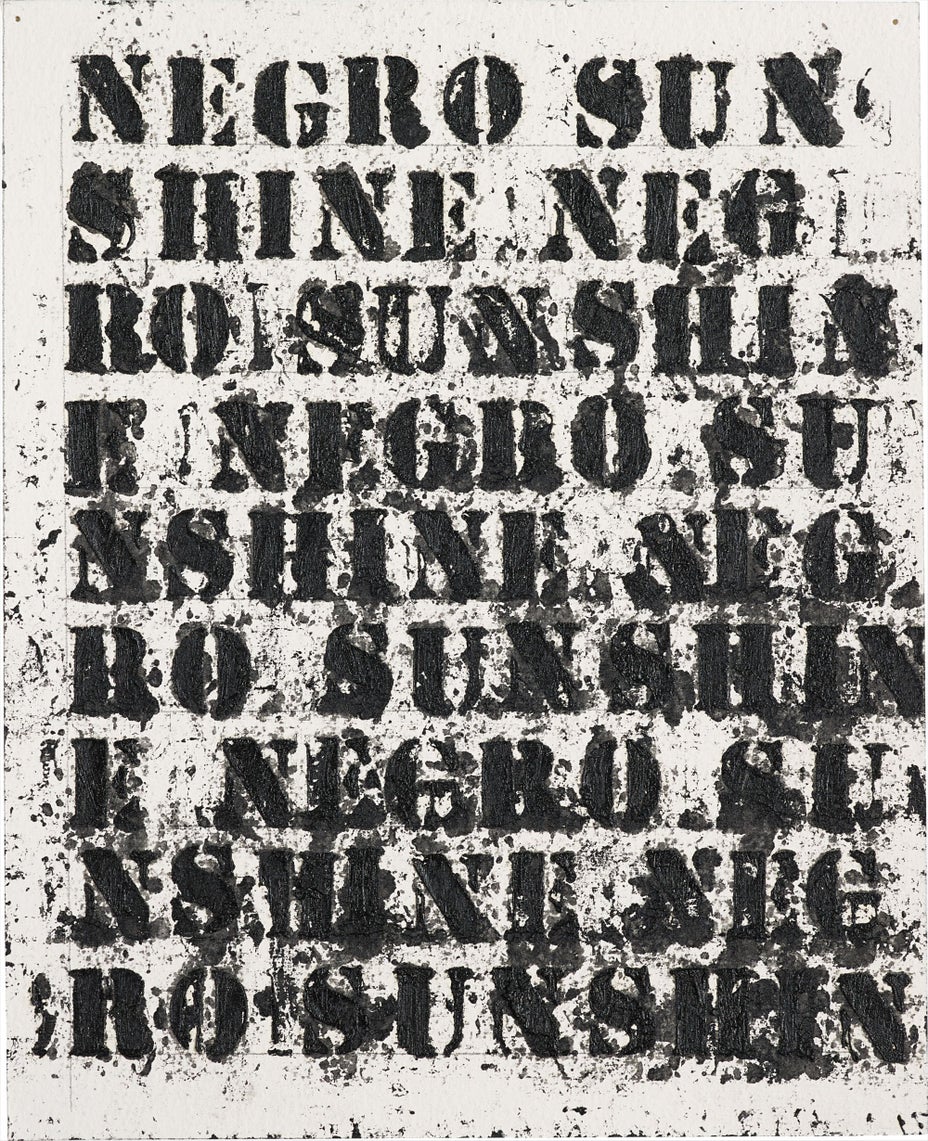 NEGRO SUN
SHINE NEG
RO SUNSHIN
E NEGRO SU
NSHINE NEG
RO SUNSHIN
E NEGRO SU
NSHINE NEG
RO SUNSHIN